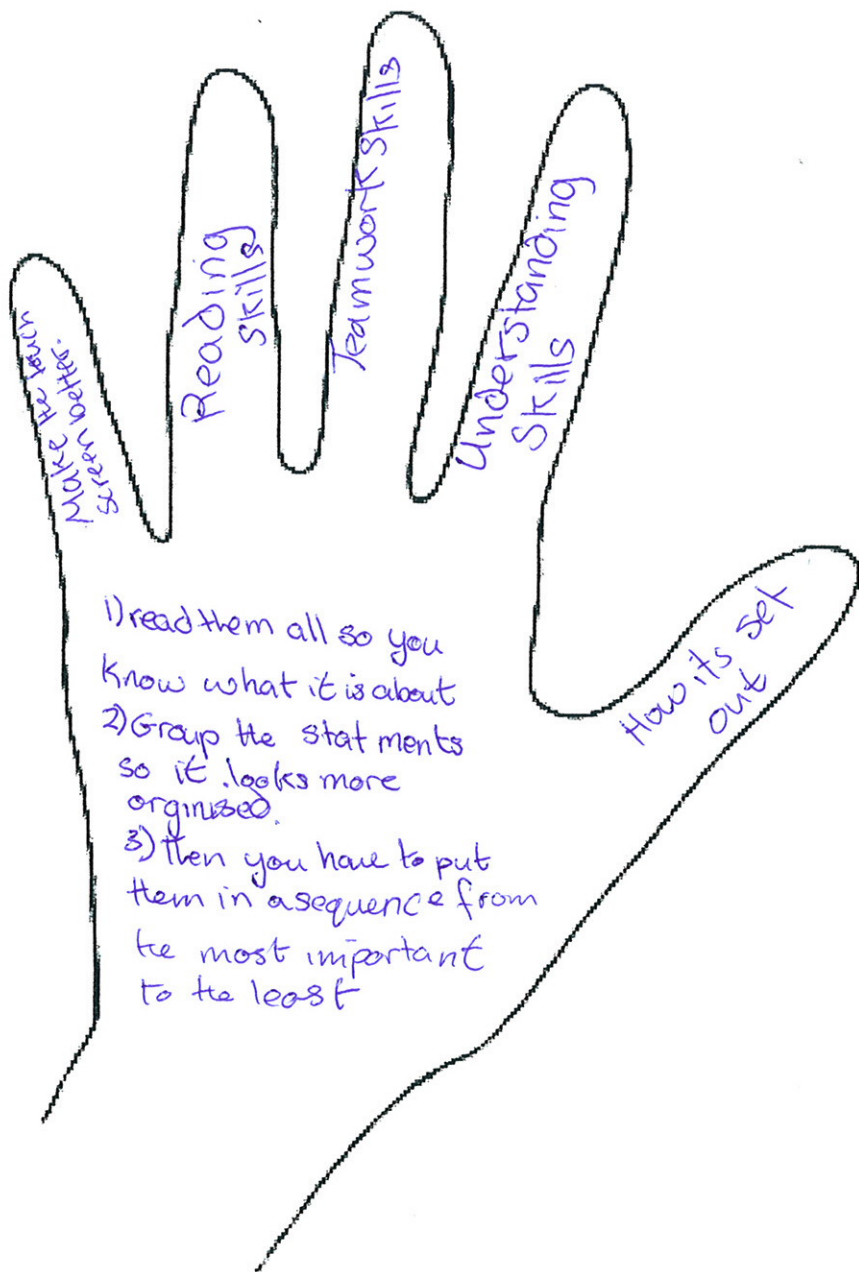 Make the touch
screen better.
Reading
Skills
Teamwork Skills
Understanding
Skills
How its set
out
1) read them all so you
know what it is about
2) Group the stat ments
so it looks more
orginised.
3) then you have to put
them in a sequence from
the most important
to the least